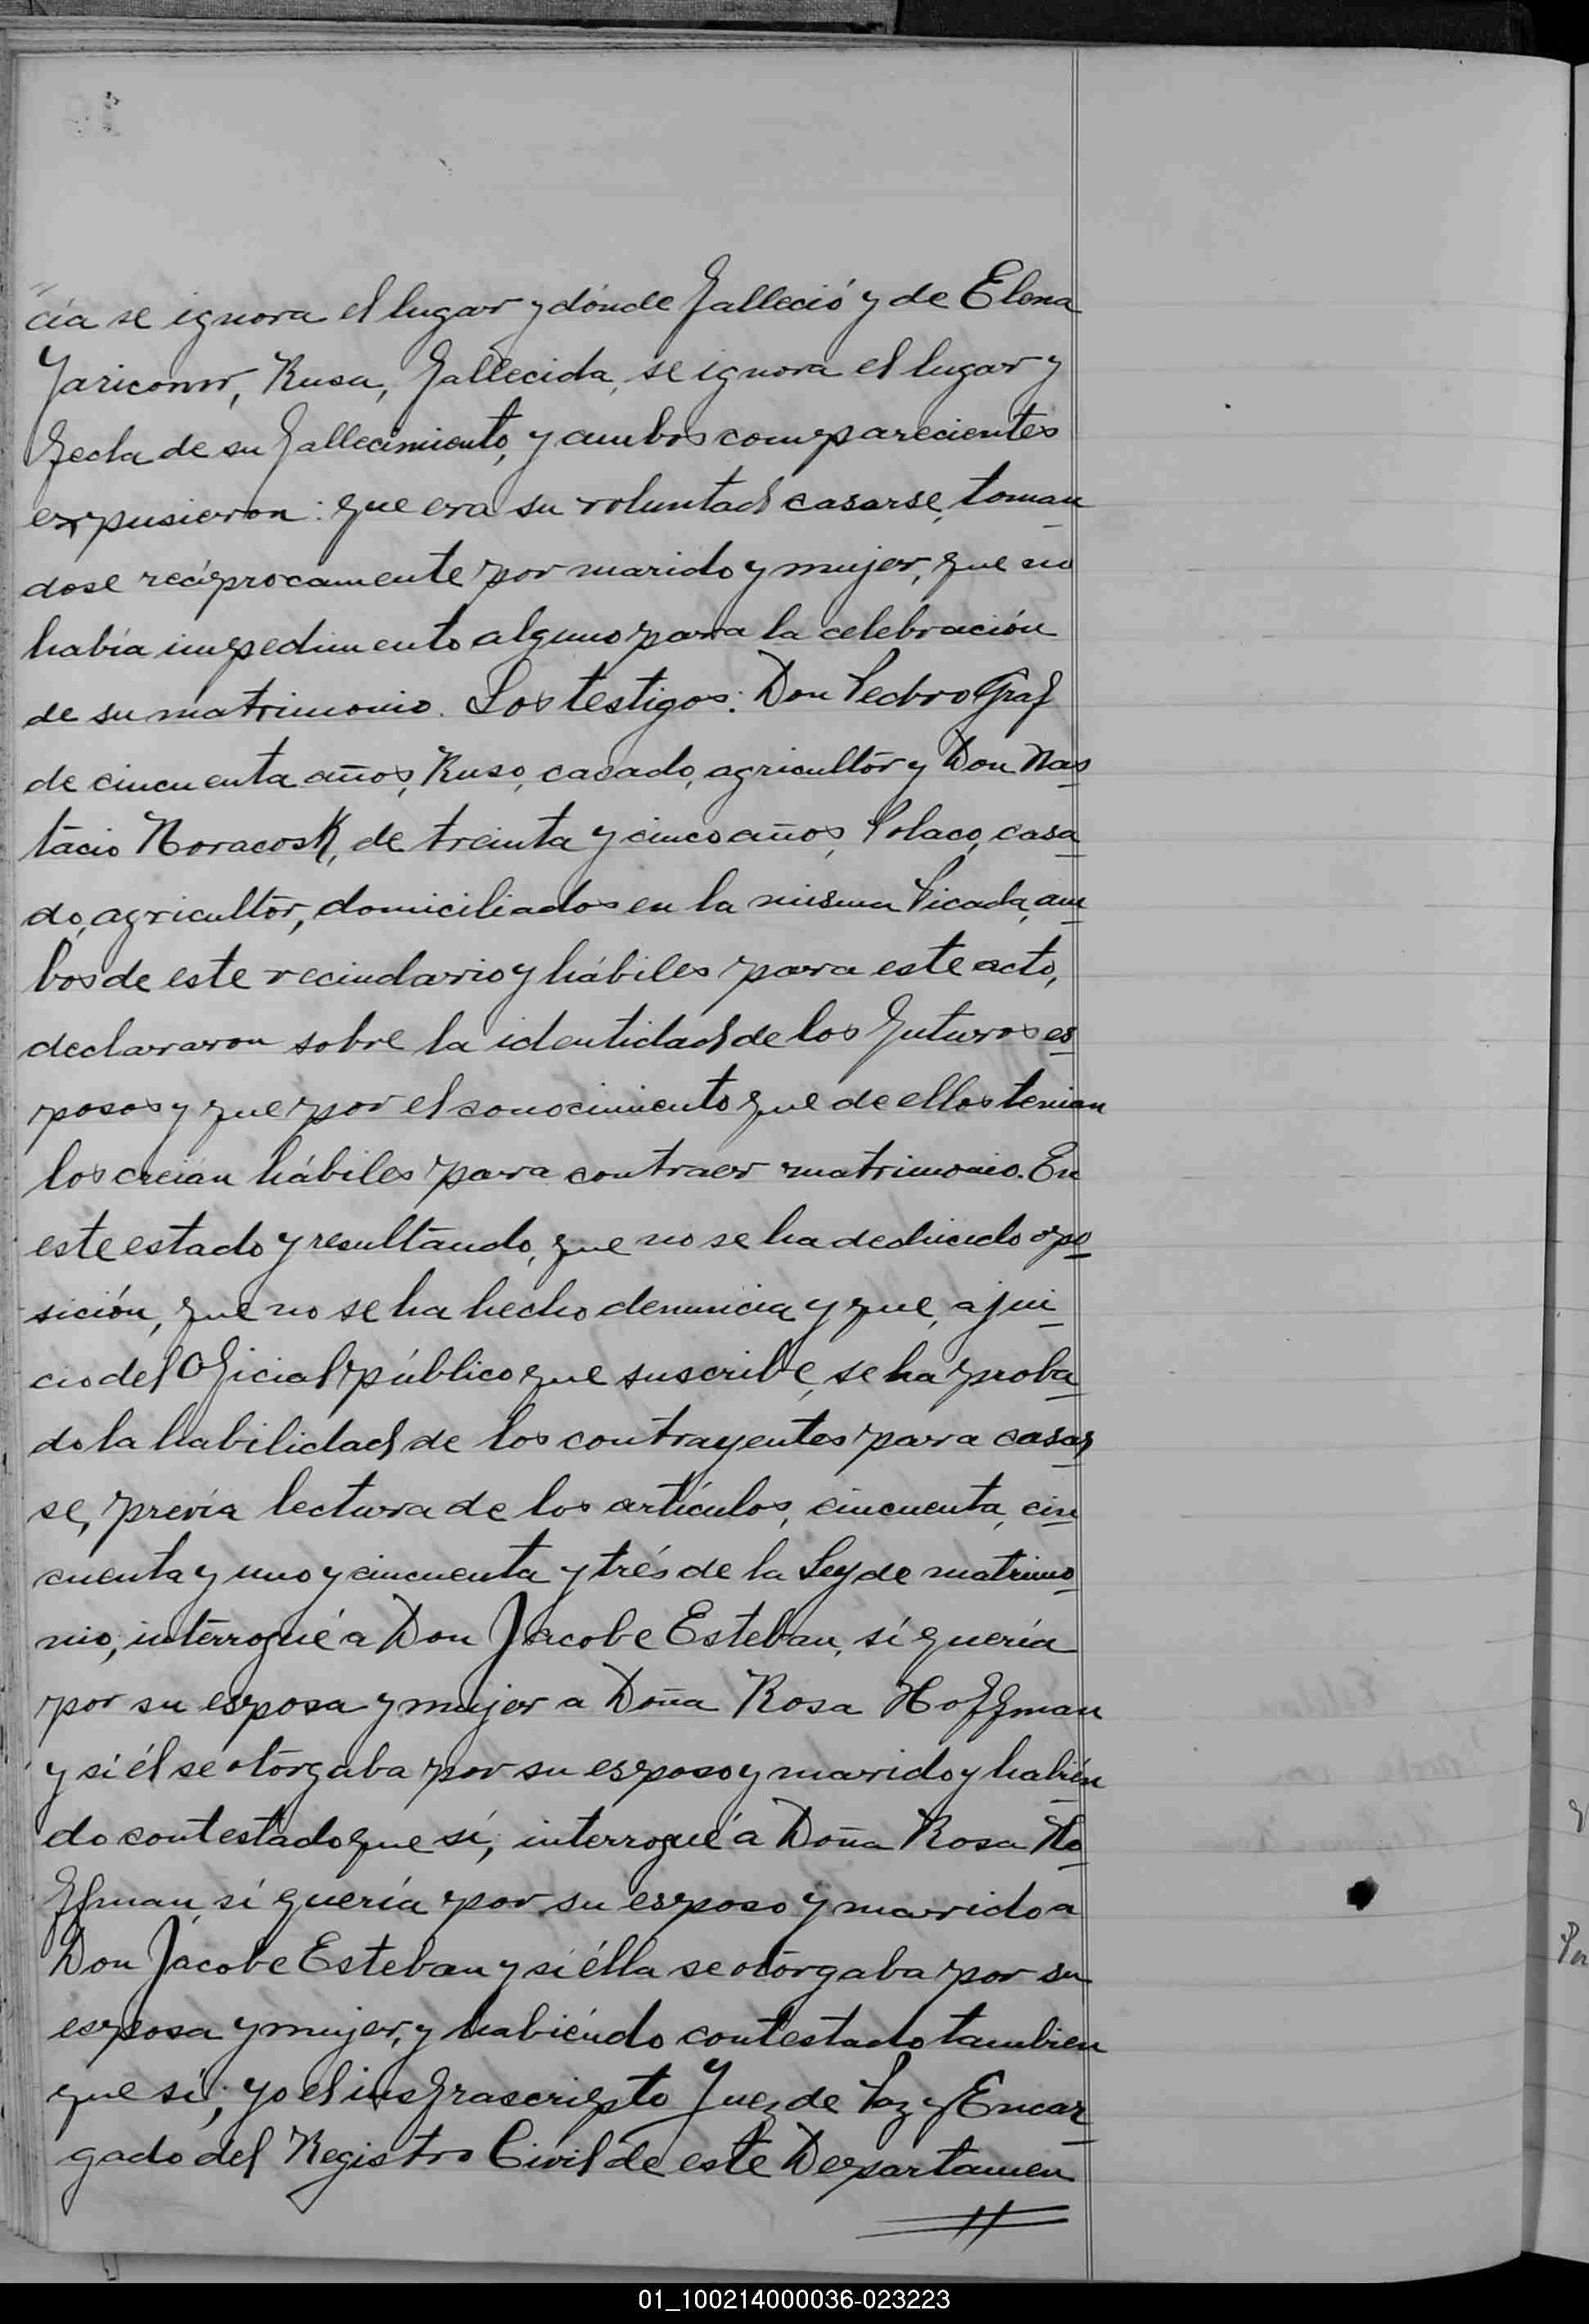 cía se ignora el lugar y dónde falleció y de Elena
Jariconv, Rusa, fallecida, se ignora el lugar y
fecha de su fallecimiento, y ambos comparecientes
expusieron: que era su voluntad casarse, toman
dose recíprocamente por marido y mujer, que no
había impedimento alguno para la celebración
de su matrimonio. Los testigos: Don Pedro Graf
de cincuenta años, Ruso, casado, agricultor y Don Nas
tacio Noracosk, de treinta y cinco años, Polaco, casa
do, agricultor, domiciliados en la misma Picada, am
bos de este vecindario y hábiles para este acto,
declararon sobre la identidad de los futuros es
posos y que por el conocimiento que de ellos tenian
los creían hábiles para contraer matrimonio. En
este estado y resultando, que no se ha deducido opo
sición, que no se ha hecho denuncia y que, a jui
cio del Oficial público que suscribe, se ha proba
do la habilidad de los contrayentes para casar
se, previa lectura de los artículos, cincuenta, cin
cuenta y uno y cincuenta y trés de la Ley de matrimo
nio, interrogué a Don Jacobe Esteban, sí quería
por su esposa y mujer a Doña Rosa Hoffman
y si él se otorgaba por su esposo y marido y habién
do contestado que sí, interrogué a Doña Rosa Ho
ffman, sí quería por su esposo y marido a
Don Jacobe Esteban y si élla se otorgaba por su
esposa y mujer, y habiéndo contestado tambien
que sí; yo el insfrascripto Juez de Paz y Encar
gado del Registro Civil de este Departamen
01_100214000036-023223